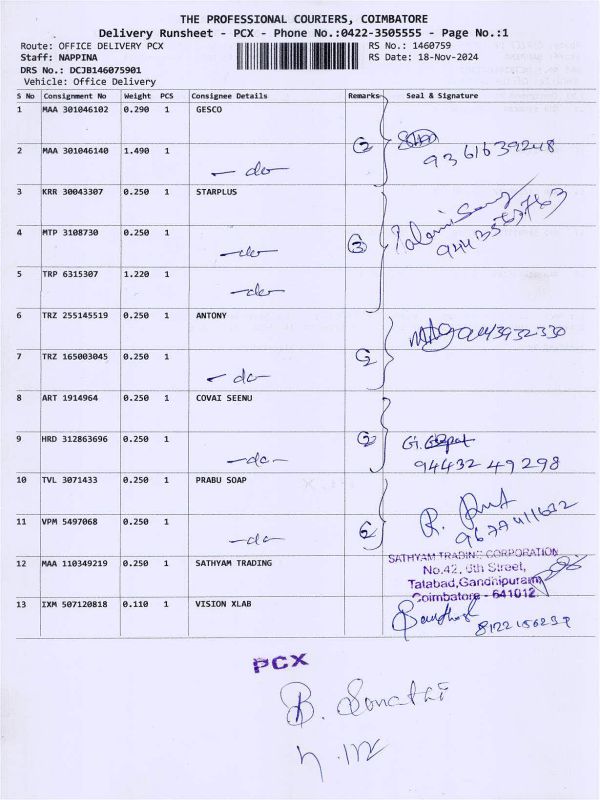 THE PROFESSIONAL COURIERS, COIMBATORE
Delivery Runsheet - PCX - Phone No.:0422-3505555 - Page No.:1
Route: OFFICE DELIVERY PCX RS No.: 1460759
Staff: NAPPINA RS Date: 18-Nov-2024
DRS No.: DCJB146075901
Vehicle: Office Delivery
S No Consignment No Weight PCS Consignee Details Remarks Seal & Signature
1 MAA 301046102 0.290 1 GESCO
2 MAA 301046140 1.490 1 - do - 2 9361639248
3 KRR 30043307 0.250 1 STARPLUS
4 MTP 3108730 0.250 1 - do - 3
5 TRP 6315307 1.220 1 - do -
6 TRZ 255145519 0.250 1 ANTONY
7 TRZ 165003045 0.250 1 - do - 2
8 ART 1914964 0.250 1 COVAI SEENU
9 HRD 312863696 0.250 1 - do - 2 G.
94432 49298
10 TVL 3071433 0.250 1 PRABU SOAP R.
11 VPM 5497068 0.250 1 - do - 2
12 MAA 110349219 0.250 1 SATHYAM TRADING
SATHYAM TRADING CORPORATION
No.42, 6th Street,
Tatabad,Gandhipuram,
Coimbatore - 641012.
13 IXM 507120818 0.110 1 VISION XLAB
PCX
B.